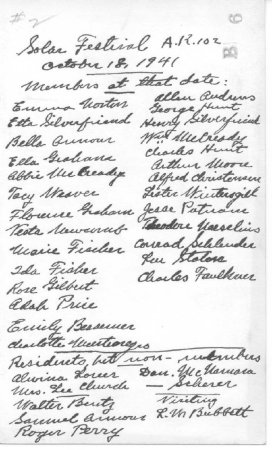 #2
B 6
Solar Festival A.K. 102
October 18, 1941
Members at that date:
Emma Norton
Etta Silverfriend
Bella Armour
Ella Graham
Abbie McCready
Tacy Weaver
Florence Graham
Veste Newcomb
Marie Fischer
Ida Fisher
Rose Gilbert
Adah Price
Emily Bessemer
Charlotte
Allen Andrews
George Hunt
Henry Silverfriend
Wm McCready
Charles Hunt
Arthur Moore
Alfred Christensen
Lester Wintersgill
Jesse Putnam
Theodore Naeselius
Conrad Schlender
Lou Staton
Charles Faulkner
Residents but non-members
Alwina
Mrs. Lee Church
Walter Bentz
Samuel Armour
Roger Perry
Dan. McNamara
— Scherer
Visiting
L. W. Bubbett